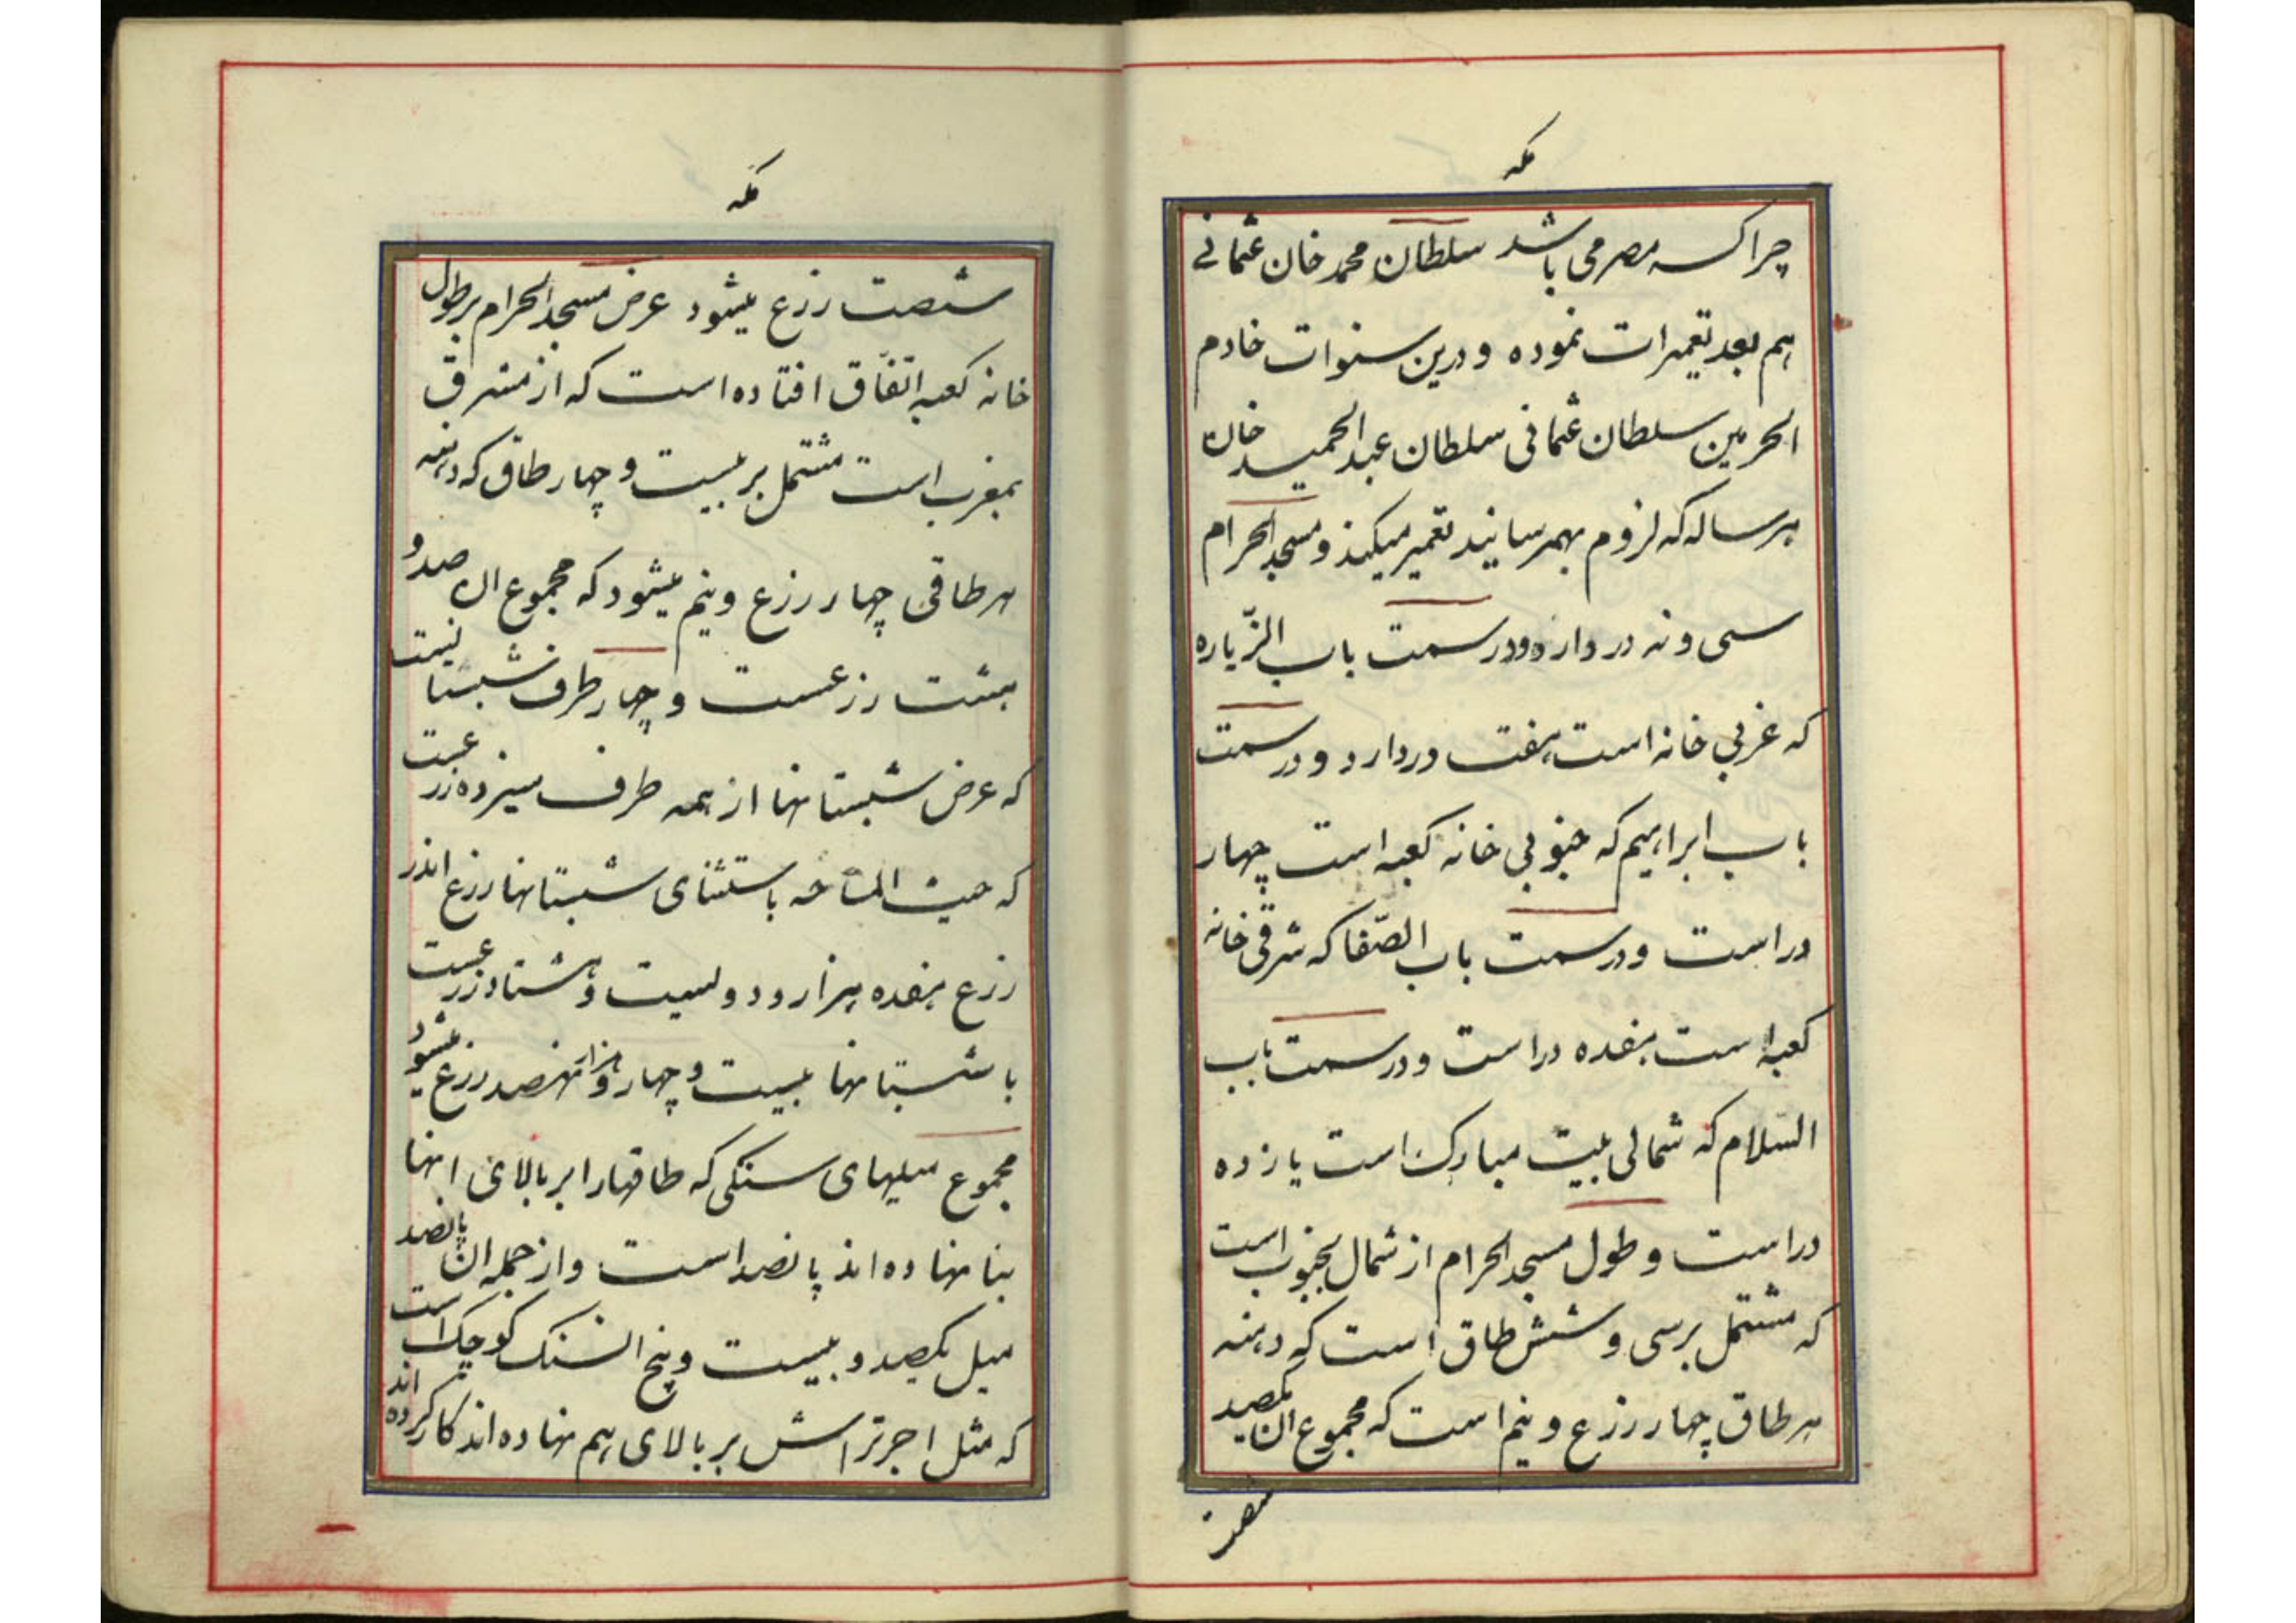 مکه
چراکسه مصر می باشد سلطان محمد خان عثمانی
هم بعد تعمیرات نموده و درین سنوات خادم
الحرمین سلطان عثمانی سلطان عبدالحمید خان
هر ساله که لزوم بهمرسانید تعمیر میکند و مسجد الحرام
سی و نه در دارد و در سمت باب الزّیاره
که غربی خانه است هفت در دارد و در سمت
باب ابراهیم که جنوبی خانه کعبه است چهار
در است و در سمت باب الصّفا که شرقی خانه
کعبه است هفده در است و در سمت باب
السّلام که شمالی بیت مبارک است یازده
در است و طول مسجد الحرام از شمال بجنوب است
که مشتمل بر سی و شش طاق است که دهنه
هر طاق چهار رزع و نیم است که مجموع ان یکصد
شصت
مکه
شصت رزع میشود عرض مسجد الحرام بر طول
خانه کعبه اتفّاق افتاده است که از مشرق
بمغرب است مشتمل بر بیست و چهار طاق که دهنه
هر طاقی چهار رزع و نیم میشود که مجموع ان صد و
هشت رزعست و چهار طرف شبستا نیست
که عرض شبستانها از همه طرف سیزده رزعست
که حیث المساحه باستثنای شبستانها رزع اندر
رزع هفده هزار و دویست و هشتاد رزعست
با شبستانها بیست و چهار هزار و نهصد رزع میشود
مجموع میلهای سنکی که طاقها را بر بالای انها
بنا نهاده اند پانصد است و از جمله ان پانصد
میل یکصد و بیست و پنج از سنک کوچک است
که مثل اجر تراش بر بالای هم نهاده اند کار کرده اند